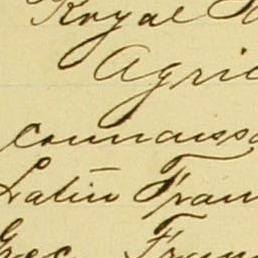 Royal
Agric
connaissa
Latin Fran
Grec Fran